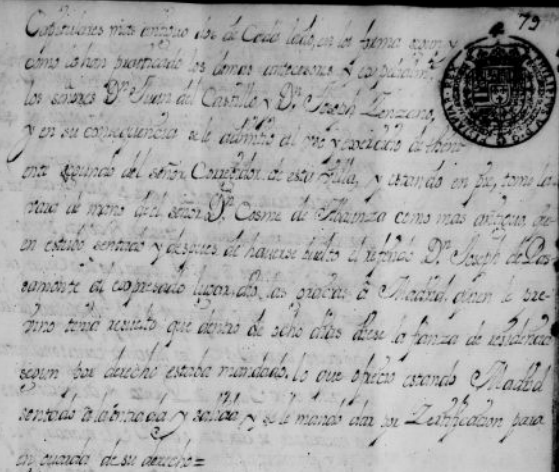 79
Capitulares mas antiguo dos de Cada lado, en la forma segun y
como lo han practicado los demas antecesores y
los señores Dn Juan del Castillo y Dn Joseph Zenzano,
y en su consequencia se le admitio al uso y exercicio de theni
ente segundo del señor Corregidor de esta Villa, y estando en pie, tomo la
vara de mano del señor Dn Cosme de Abaunza como mas antiguo, que
en estubo sentado y despues de haverse buelto el referido Dn Joseph de Pas
samonte al expresado lugar, dio las gracias a Madrid, quien le pre
vino tenia resuelto que dentro de ocho dias diese la fianza de residencia
segun por derecho estaba mandado, lo que ofrecio estando Madrid
sentado a la entrada y salida y se le mando dar por Zertificacion para
en guarda de su derecho=